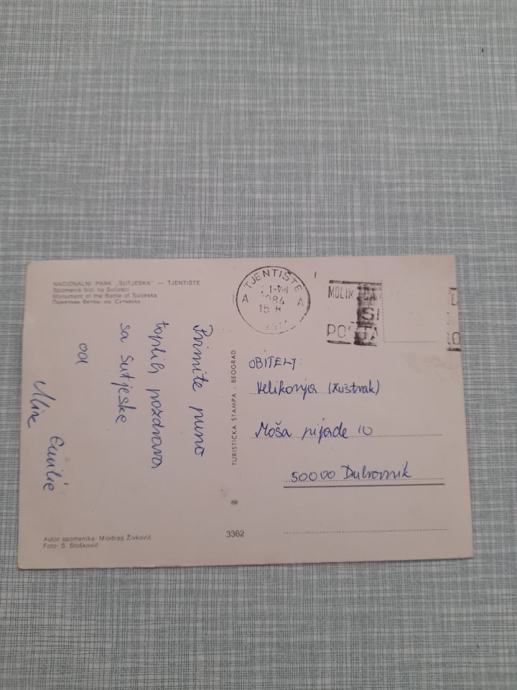 NACIONALNI PARK „SUTJESKA" — TJENTIŠTE
Spomenik bici na Sutjesci
Monument of the Battle of Sutjeska
Памятник битвы на Сутьеска
Primite puno
toplih pozdrava
sa Sutjeske
od
Emilie
Autor spomenika: Miodrag Živković
Foto: S. Stošković
TURISTIČKA ŠTAMPA - BEOGRAD
3362
TJENTIŠTE
A A
OBITELJ:
Velikonja
Moša pijade 10
50000 Dubrovnik